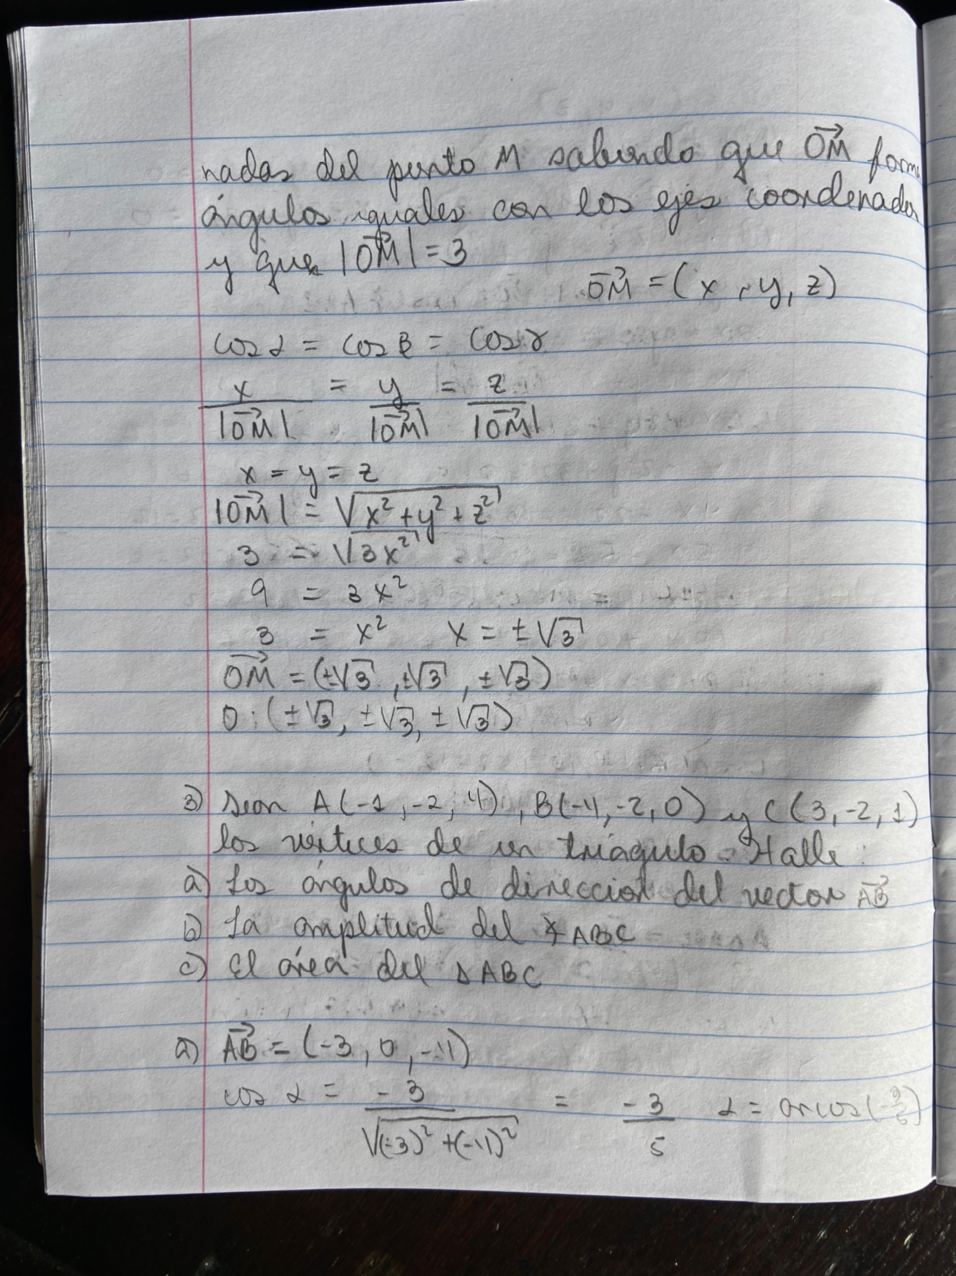 nadas del punto M sabiendo que OM⃗ form
ángulos iguales con los ejes coordenados
y que |OM⃗| = 3
OM⃗ = (x, y, z)
cos α = cos β = cos γ
x/|OM⃗| = y/|OM⃗| = z/|OM⃗|
x = y = z
|OM⃗| = √(x² + y² + z²)
3 = √(3x²)
9 = 3x²
3 = x² x = ±√3
OM⃗ = (±√3, ±√3, ±√3)
O: (±√3, ±√3, ±√3)
3) Sean A(-1, -2, 4), B(-4, -2, 0) y C(3, -2, 1)
los vértices de un triágulo. Halle:
a) Los ángulos de direccion del vector AB⃗
b) La amplitud del ∢ABC
c) El área del △ABC
a) AB⃗ = (-3, 0, -4)
cos α = -3/√((-3)² + (-4)²) = -3/5 α = arcos(-3/5)